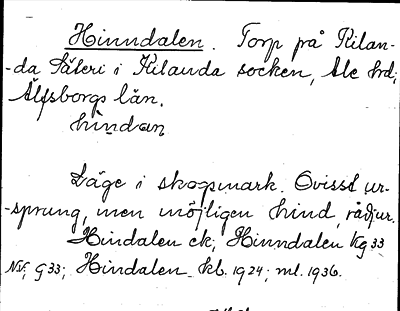 Hinndalen. Torp på Kilan-
-da Säteri i Kilanda socken, Ale hd;
Älfsborgs län.
hindan
Läge i skogsmark. Ovisst ur-
-sprung, men möjligen hind, rådjur.
Hindalen ek; Hinndalen Kg 33
NV; G33; Hindalen kb. 1924; ml. 1936.